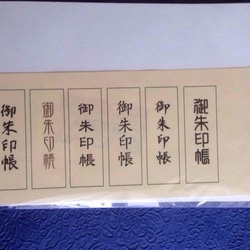 御朱印帳
御朱印帳
御朱印帳
御朱印帳
御朱印帳
御朱印帳